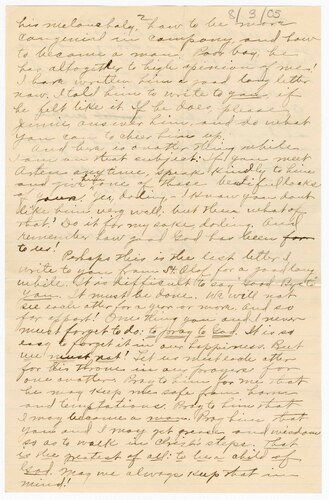 8/9/05
his melancholy, how to be more
congenial in company and how
to become a man. Poor boy, he
has altogether to high opinion of me!
I have written him a good long letter
now. I told him to write to you if
he felt like it. If he does, please
answer him, and do what
you can to cheer him up.
And here is another thing while
I am on that subject: If you meet
anytime, speak kindly to him
and give one of those beautiful looks
of yours. Yes, darling - I know you don't
like him very well, but then what of
that! Do it for my sake, darling. And
remember how good God has been
to us!
Perhaps this is the last letter I
write to you from St. Olaf for a good long
while. It is so difficult to say Good Bye to
you. It must be done. We will not
see each other for a year or more. And so
far apart! One thing you and I never
must forget to do; to pray to God. It is so
easy to forget it in our happiness. But
we must not! Let us meet each other
for his throne in our prayers for
one another. Pray to him for me that
he may keep me safe from harm
and temptations. Pray to him that
I may become a man. Pray him that
you and I may get power and wisdom
so as to walk in Christ's steps. That
is the greatest of all: to be a child of
God. May we always keep that in
mind!